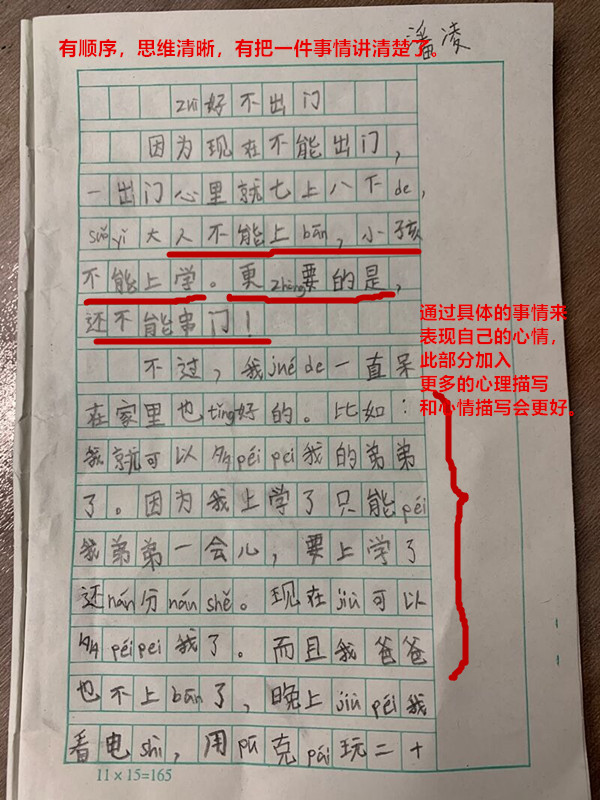 潘凌
有顺序，思维清晰，有把一件事情讲清楚了。
zhǐ好不出门
因为现在不能出门，
一出门心里就七上八下de，
suǒyǐ大人不能上bān，小孩
不能上学。更zhòng要的是，
还不能串门！
通过具体的事情来
表现自己的心情，
此部分加入
更多的心理描写
和心情描写会更好。
不过，我jué de一直呆
在家里也tǐng好的。比如：
我就可以多péi pei我的弟弟
了。因为我上学了只能péi
我弟弟一会儿，要上学了
还nán分nán shě。现在jiù可以
多péi pei我了。而且我爸爸
也不上bān了，晚上jiù péi我
看电shì，用pū克pái玩二十
11×15=165